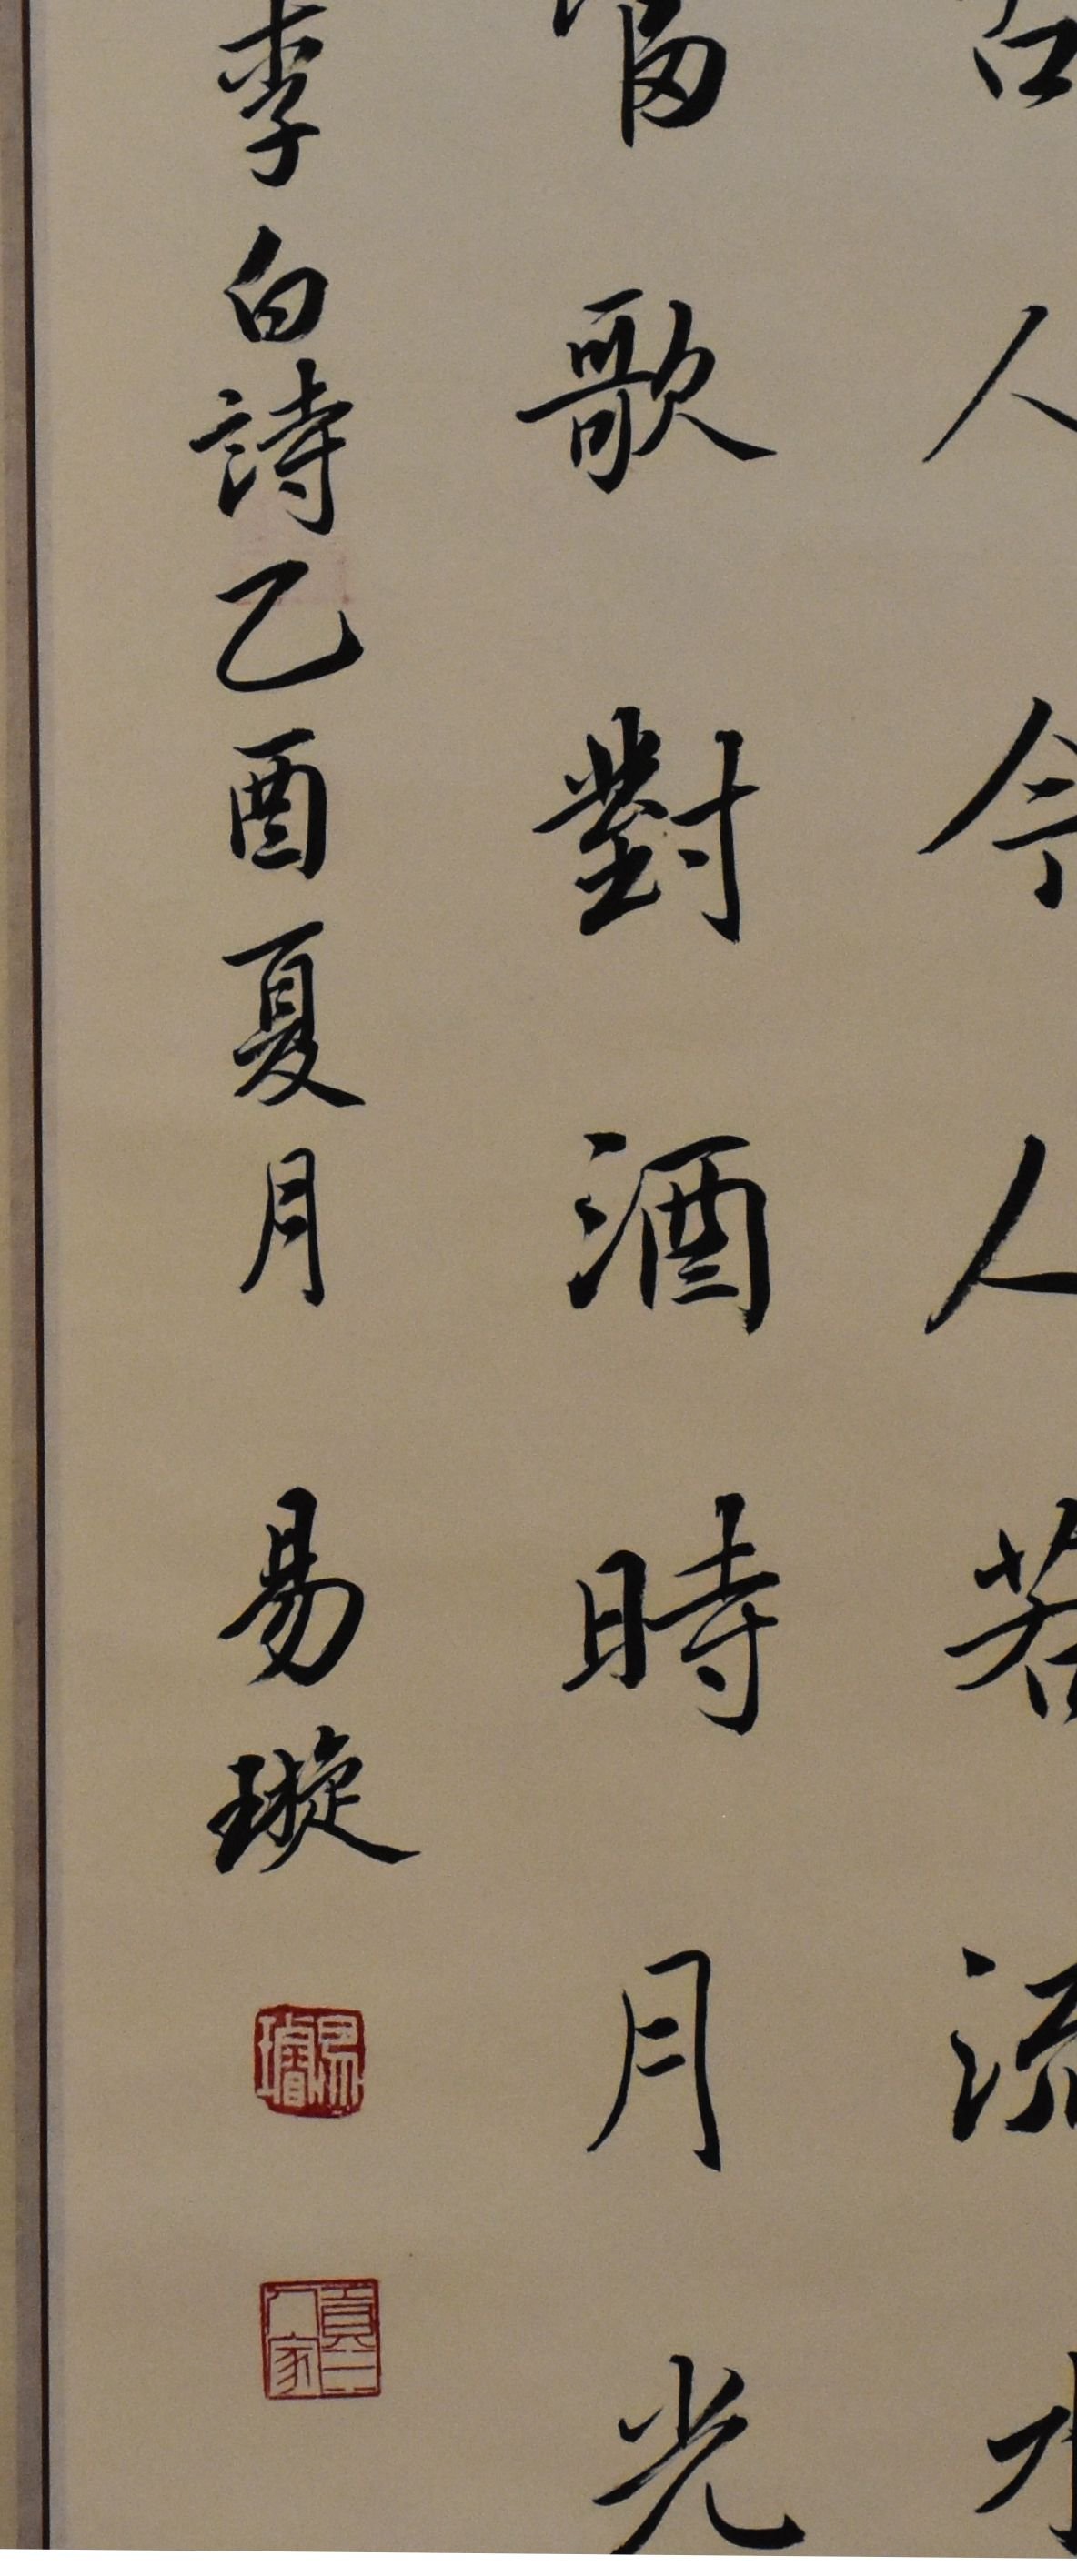 古人今人若流水
當歌對酒時月光
李白詩乙酉夏月 易璇